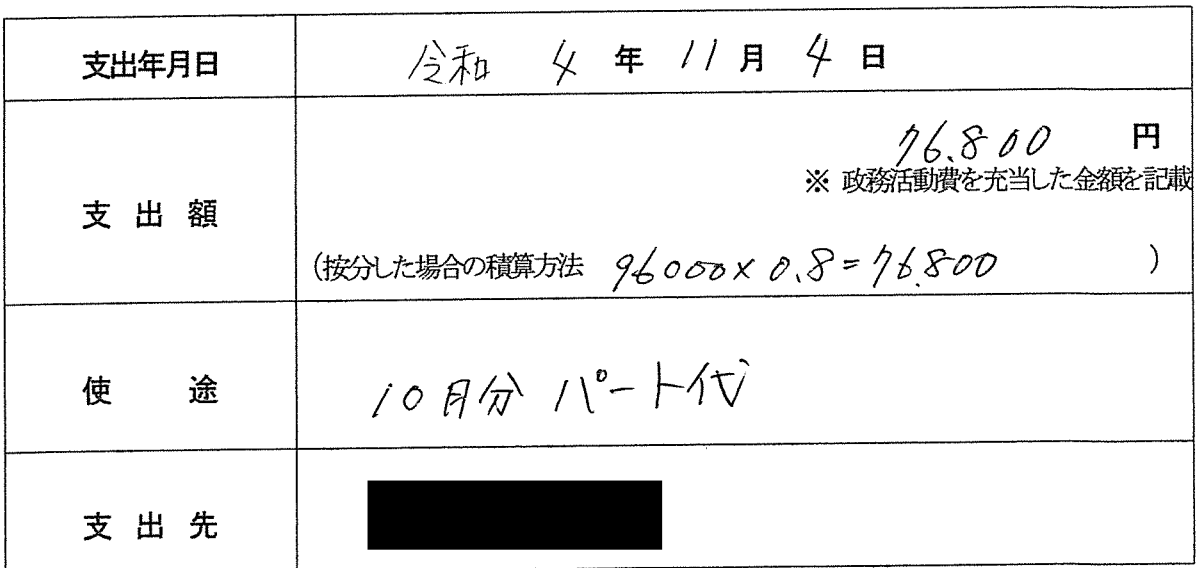 支出年月日 令和 4 年 11 月 4 日
76.800 円
※ 政務活動費を充当した金額を記載
支出額
(按分した場合の積算方法 96000×0.8=76.800 )
使途 10月分 パート代
支出先